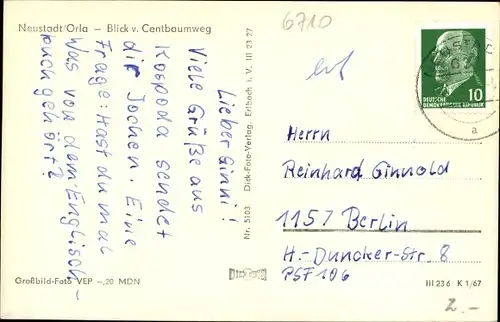 Neustadt/Orla — Blick v. Centbaumweg
6710
Lieber Ginni!
Viele Grüße aus
Kospoda sendet
dir Jochen. Eine
Frage: Hast du mal
was von dem Englisch-
buch gehört?
Großbild-Foto VEP -,20 MDN
Nr. 5103 Dick-Foto-Verlag, Erlbach i. V. III 23 27
DICK-FOTO
10
DEUTSCHE
DEMOKRATISCHE REPUBLIK
a
Herrn
Reinhard Ginnold
1157 Berlin
H.-Duncker-Str. 8
PSF 106
III 23 6 K 1/67
2.-